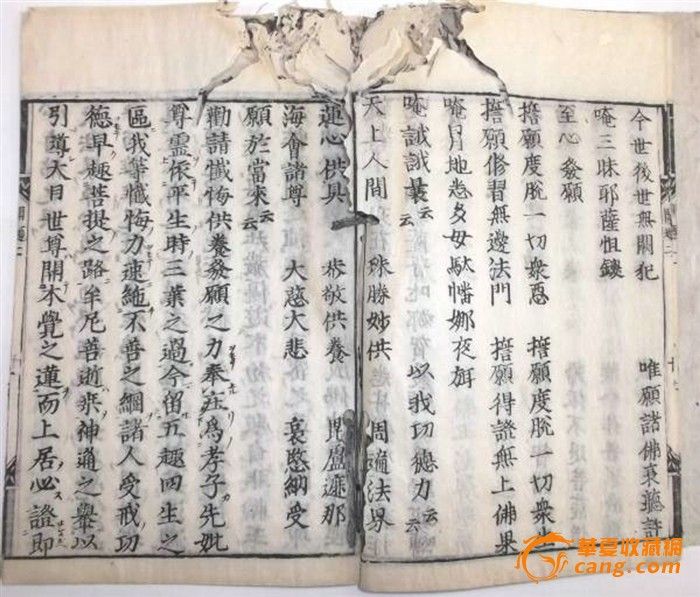 今世後世無闕犯　唯願諸佛哀聽許
唵三昧耶薩怛鑁
至心發願
誓願度脫一切衆惡　誓願度脫一切衆生
誓願修習無邊法門　誓願得證無上佛果
唵月地悉多母駄幡娜夜弭
唵誐誐曩云云　以我功德力云云
天上人間　殊勝妙供　周遍法界
蓮心供具　恭敬供養　毘盧遮那
海會諸尊　大慈大悲　哀愍納受
願於當來云云
勸請懺悔供養發願之力奉荘為孝子先妣
尊靈依平生時三業之過今留五趣四生之
區我等懺悔力速絶不善之綱諸人受戒功
德早趣菩提之路牟尼善逝乘神通之轝以
引導大日世尊開本覺之蓮而上居必證即
華夏收藏網
cang.com